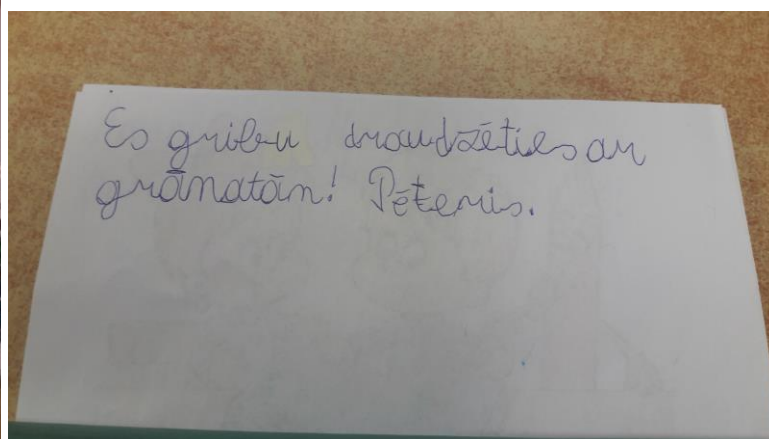 Es gribu draudzēties ar
grāmatām! Pēteris.